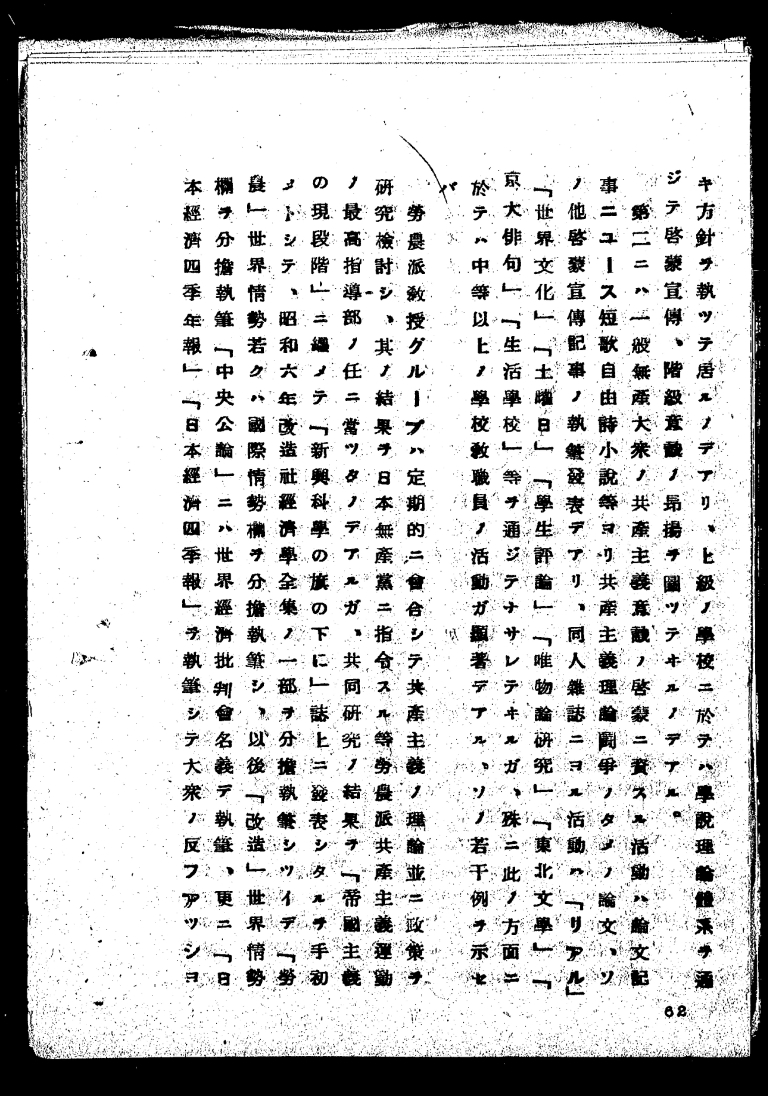 キ方針ヲ執ツテ居ルノデアリ、上級ノ學校ニ於テハ學說理論體系ヲ通
ジテ啓蒙宣傳、階級意識ノ昂揚ヲ圖ツテヰルノデアル。
第二ニハ一般無產大衆ノ共產主義意識ノ啓蒙ニ資スル活動ハ論文記
事ニユース短歌自由詩小說等ヨリ共產主義理論鬪爭ノタメノ論文、ソ
ノ他啓蒙宣傳記事ノ執筆發表デアリ、同人雜誌ニヨル活動ハ「リアル」
「世界文化」「土曜日」「學生評論」「唯物論研究」「東北文學」「
京大俳句」「生活學校」等ヲ通ジテナサレテヰルガ、殊ニ此ノ方面ニ
於テハ中等以上ノ學校敎職員ノ活動ガ顯著デアル、ソノ若干例ヲ示セ
バ
勞農派敎授グループハ定期的ニ會合シテ共產主義ノ理論並ニ政策ヲ
研究檢討シ、其ノ結果ヲ日本無產黨ニ指令スル等勞農派共產主義運動
ノ最高指導部ノ任ニ當ツタノデアルガ、共同硏究ノ結果ヲ「帝國主義
の現段階」ニ纒メテ「新興科學の旗の下に」誌上ニ發表シタルヲ手初
メトシテ、昭和六年改造社經濟學全集ノ一部ヲ分擔執筆シツイデ「勞
農」世界情勢若クハ國際情勢欄ヲ分擔執筆シ、以後「改造」世界情勢
欄ヲ分擔執筆「中央公論」ニハ世界經濟批判會名義デ執筆、更ニ「日
本經濟四季年報」「日本經濟四季報」ヲ執筆シテ大衆ノ反フアツシヨ
62